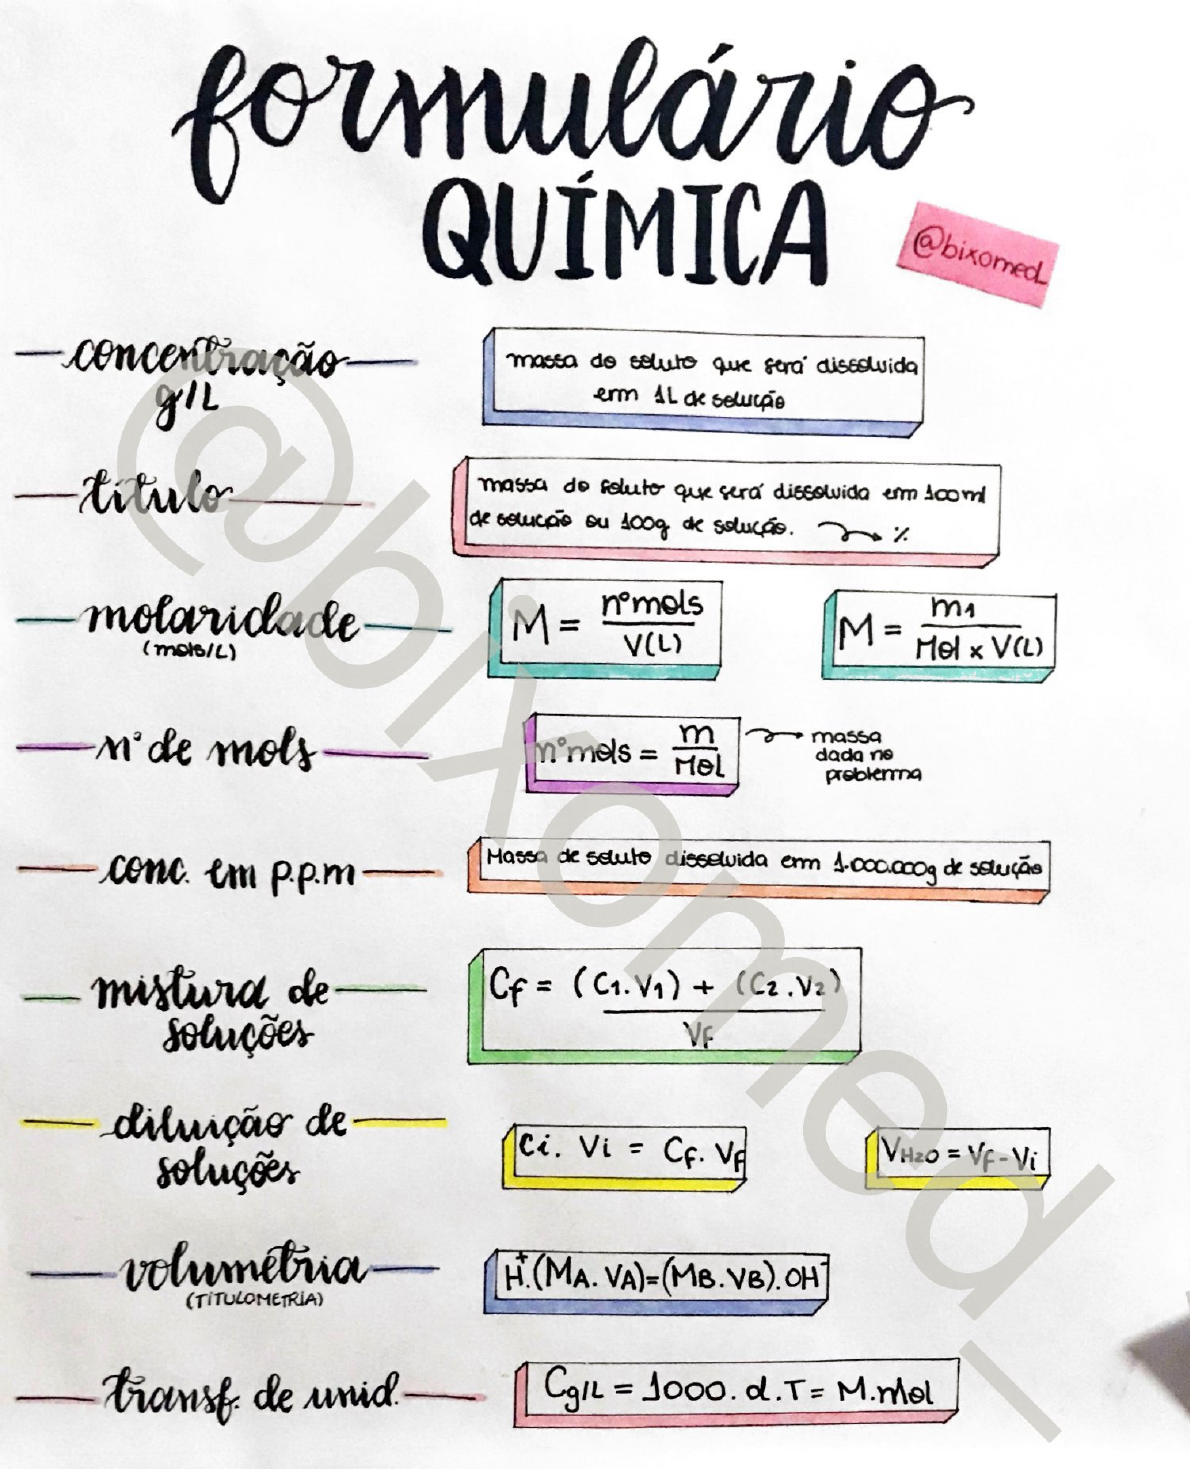 formulário
QUÍMICA
@bixomed
concentração
g/L
massa do soluto que será dissolvida
em 1L de solução
título
massa do soluto que será dissolvida em 100ml
de solução ou 100g de solução. %
molaridade
(mols/L)
M = nºmols / V(L)
M = m1 / Mol x V(L)
nº de mols
nºmols = m / Mol
massa
dada no
problema
conc. em p.p.m
Massa de soluto dissolvida em 1.000.000g de solução
mistura de
soluções
Cf = (C1.V1) + (C2.V2) / Vf
diluição de
soluções
Ci. Vi = Cf. Vf
VH2O = Vf - Vi
volumetria
(TITULOMETRIA)
H+.(MA.VA)=(MB.VB).OH-
transf. de unid.
Cg/L = 1000.d.T = M.mol
@bixomed_